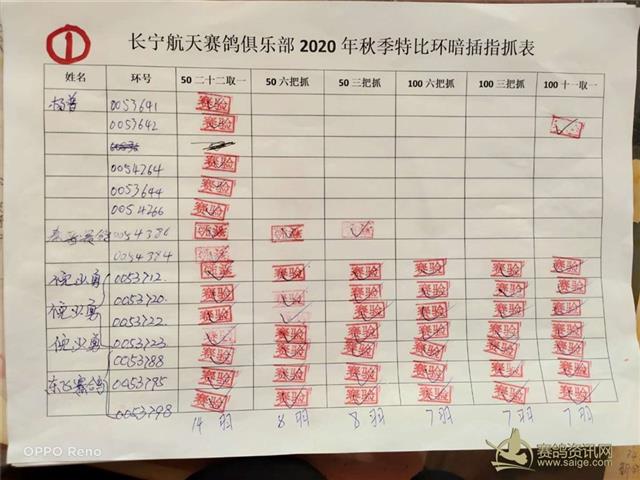 ①
长宁航天赛鸽俱乐部 2020 年秋季特比环暗插指抓表
姓名 环号 50 二十二取一 50 六把抓 50 三把抓 100 六把抓 100 三把抓 100 十一取一
杨普 0053641 赛验
0053642 赛验
0054264 赛验
0053644 赛验
0054266 赛验
赛鸽 0054384
0054384
倪业勇 0053712 赛验 赛验 赛验 赛验 赛验
倪业勇 0053720 赛验 赛验 赛验 赛验 赛验
0053722 赛验 赛验 赛验 赛验 赛验
倪业勇 0053723 赛验 赛验 赛验 赛验 赛验
0053788 赛验 赛验 赛验 赛验 赛验 赛验
东飞赛鸽 0053795 赛验 赛验 赛验 赛验 赛验 赛验
0053798 赛验 赛验 赛验 赛验 赛验 赛验
14 羽 8 羽 8 羽 7 羽 7 羽 7 羽
OPPO Reno
赛鸽资讯网
www.saige.com